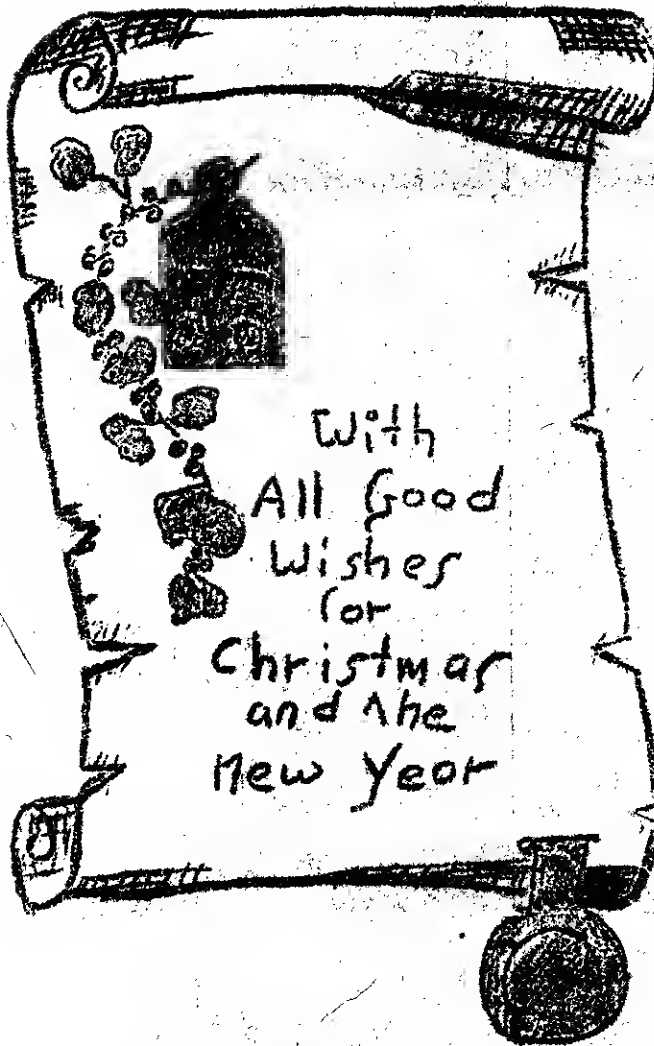 With
All Good
Wishes
for
Christmas
and the
New Year